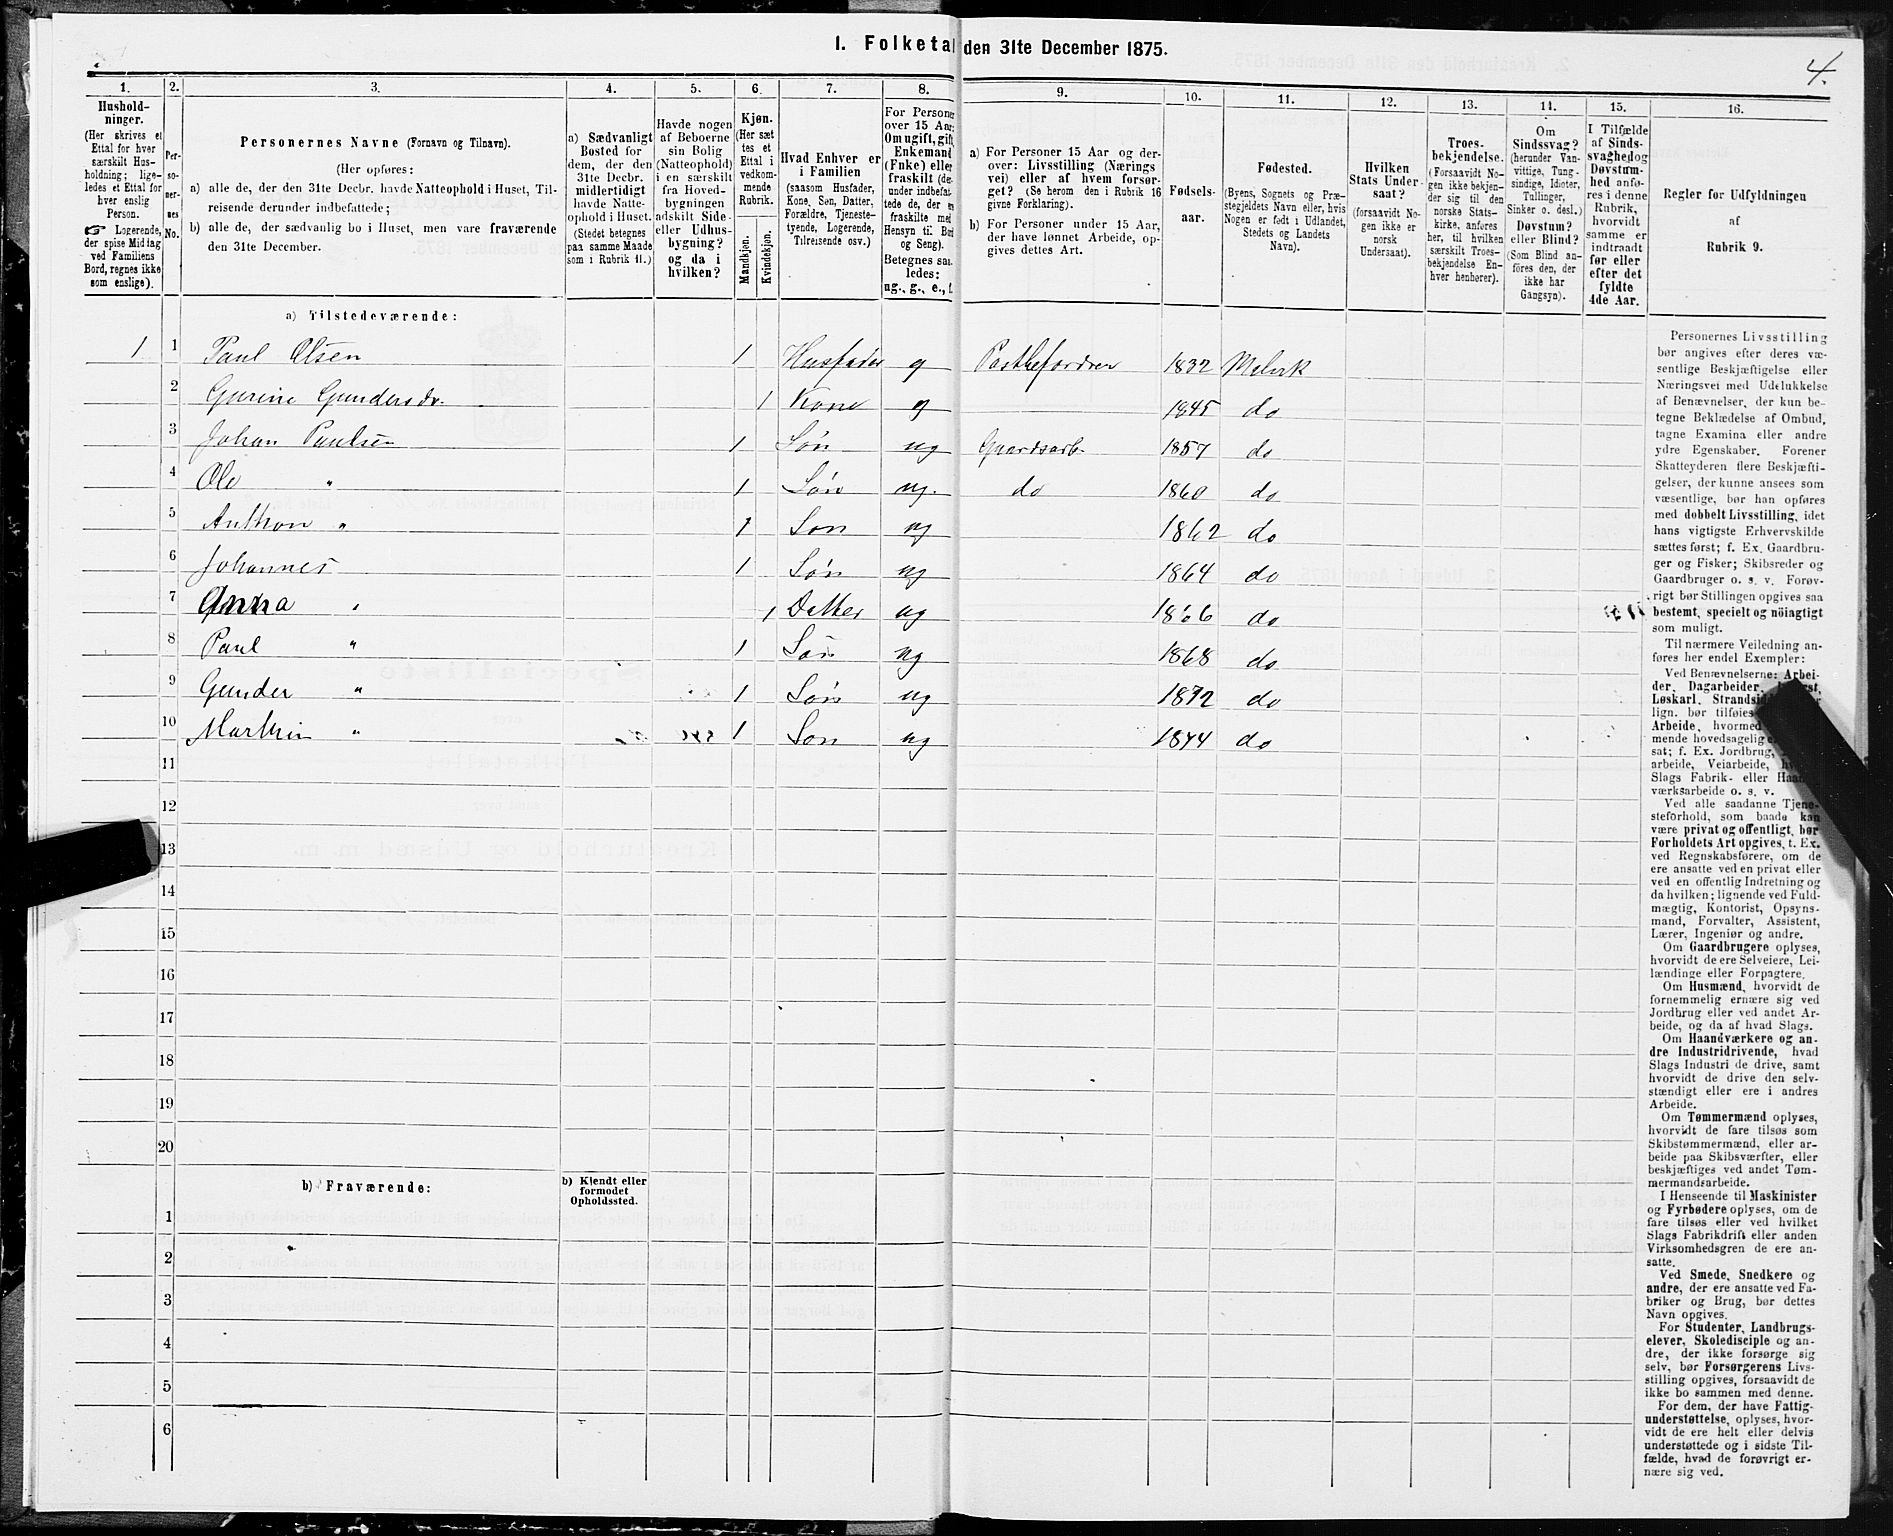 I. Folketal den 31te December 1875.
4.
1. 2. 3. 4. 5. 6. 7. 8. 9. 10. 11. 12. 13. 14. 15. 16.
Hushold-
ninger.
(Her skrives et
Ettal for hver
særskilt Hus-
holdning; lige-
ledes et Ettal for
hver enslig
Person.
☞ Logerende,
der spise Middag
ved Familiens
Bord, regnes ikke
som enslige).
Per-
so-
ner-
nes
No.
Personernes Navne (Fornavn og Tilnavn).
(Her opføres:
a) alle de, der den 31te Decbr. havde Natteophold i Huset, Til-
reisende derunder indbefattede;
b) alle de, der sædvanlig bo i Huset, men vare fraværende
den 31te December.
a) Sædvanligt
Bosted for
dem, der den
31te Decbr.
midlertidigt
havde Natte-
ophold i Huset.
(Stedet betegnes
paa samme Maade
som i Rubrik 11.)
Havde nogen
af Beboerne
sin Bolig
(Natteophold)
i en særskilt
fra Hoved-
bygningen
adskilt Side-
eller Udhus-
bygning?
og da i
hvilken?
Kjøn.
(Her sæt
tes et
Ettal i
vedkom-
mende
Rubrik.
Mandkjøn.
Kvindekjøn.
Hvad Enhver er
i Familien
(saasom Husfader,
Kone, Søn, Datter,
Forældre, Tjeneste-
tyende, Logerende,
Tilreisende osv.)
For Personer
over 15 Aar:
Om ugift, gift,
Enkemand
(Enke) eller
fraskilt (der-
under indbefat-
tede de, der ere
fraskilte med
Hensyn til Bord
og Seng).
Betegnes saa-
ledes:
ug., g., e., f.
a) For Personer 15 Aar og der-
over: Livsstilling (Nærings
vei) eller af hvem forsør-
get? (Se herom den i Rubrik 16
givne Forklaring).
b) For Personer under 15 Aar,
der have lønnet Arbeide, op-
gives dettes Art.
Fødsels-
aar.
Fødested.
(Byens, Sognets og Præ-
stegjeldets Navn eller, hvis
Nogen er født i Udlandet,
Stedets og Landets
Navn).
Hvilken
Stats Under-
saat?
(forsaavidt No-
gen ikke er
norsk
Undersaat).
Troes-
bekjendelse.
(Forsaavidt No-
gen ikke bekjen-
der sig til den
norske Stats-
kirke, anføres
her, til hvilken
særskilt Troes-
bekjendelse En-
hver henhører).
Om
Sindssvag?
(herunder Van-
vittige, Tung-
sindige, Idioter,
Tullinger,
Sinker o. desl.)
Døvstum?
eller Blind?
(Som Blind an-
føres den, der
ikke har
Gangsyn).
I Tilfælde
af Sinds-
svaghed og
Døvstum-
hed anfø-
res i denne
Rubrik,
hvorvidt
samme er
indtraadt
før eller
efter det
fyldte
4de Aar.
Regler for Udfyldningen
af
Rubrik 9.
a) Tilstedeværende:
1 1 Paul Olsen 1 Husfader g Postbefordrer 1832 Malvik
2 Gurine Gundersdr. 1 Kone g 1845 do
3 Johan Paulsen 1 Søn ug Gaardsarb. 1857 do
4 Ole " 1 Søn ug. do 1860 do
5 Anthon " 1 Søn ug 1862 do
6 Johannes 1 Søn ug 1864 do
7 Anna " 1 Datter ug 1866 do
8 Paul " 1 Søn ug 1868 do
9 Gunder " 1 Søn ug 1872 do
10 Marthin " 1 Søn ug 1874 do
11
12
13
14
15
16
17
18
19
20
b) Fraværende:
b) Kjendt eller
formodet
Opholdssted.
1
2
3
4
5
6
Personernes Livsstilling
bør angives efter deres væ-
sentlige Beskjæftigelse eller
Næringsvei med Udelukkelse
af Benævnelser, der kun be-
tegne Beklædelse af Ombud,
tagne Examina eller andre
ydre Egenskaber. Forener
Skatteyderen flere Beskjæfti-
gelser, der kunne ansees som
væsentlige, bør han opføres
med dobbelt Livsstilling, idet
hans vigtigste Erhvervskilde
sættes først; f. Ex. Gaardbru-
ger og Fisker; Skibsreder og
Gaardbruger o. s. v. Forøv-
rigt bør Stillingen opgives saa
bestemt, specielt og nöiagtigt
som muligt.
Til nærmere Veiledning an-
føres her endel Exempler:
Ved Benævnelserne: Arbei-
der, Dagarbeider,
Løskarl, Strandsid
lign. bør tilføies
Arbeide, hvormed
mende hovedsagelig er
sat; f. Ex. Jordbrug,
arbeide, Veiarbeide,
Slags Fabrik- eller Haand-
værksarbeide o. s. v.
Ved alle saadanne Tjene-
steforhold, som baade kan
være privat og offentligt, bør
Forholdets Art opgives, t. Ex.
ved Regnskabsførere, om de
ere ansatte ved en privat eller
ved en offentlig Indretning og
da hvilken; lignende ved Fuld-
mægtig, Kontorist, Opsyns-
mand, Forvalter, Assistent,
Lærer, Ingeniør og andre.
Om Gaardbrugere oplyses,
hvorvidt de ere Selveiere, Lei-
lændinge eller Forpagtere.
Om Husmænd, hvorvidt de
fornemmelig ernære sig ved
Jordbrug eller ved andet Ar-
beide, og da af hvad Slags.
Om Haandværkere og an-
dre Industridrivende, hvad
Slags Industri de drive, samt
hvorvidt de drive den selv-
stændigt eller ere i andres
Arbeide.
Om Tømmermænd oplyses,
hvorvidt de fare tilsøs som
Skibstømmermænd, eller ar-
beide paa Skibsværfter, eller
beskjæftiges ved andet Tøm-
mermandsarbeide.
I Henseende til Maskinister
og Fyrbødere oplyses, om de
fare tilsøs eller ved hvilket
Slags Fabrikdrift eller anden
Virksomhedsgren de ere an-
satte.
Ved Smede, Snedkere og
andre, der ere ansatte ved Fa-
briker og Brug, bør dettes
Navn opgives.
For Studenter, Landbrugs-
elever, Skoledisciple og an-
dre, der ikke forsørge sig
selv, bør Forsørgerens Livs-
stilling opgives, forsaavidt de
ikke bo sammen med denne.
For dem, der have Fattig-
understøttelse, oplyses, hvor-
vidt de ere helt eller delvis
understøttede og i sidste Til-
fælde, hvad de forøvrigt er-
nære sig ved.